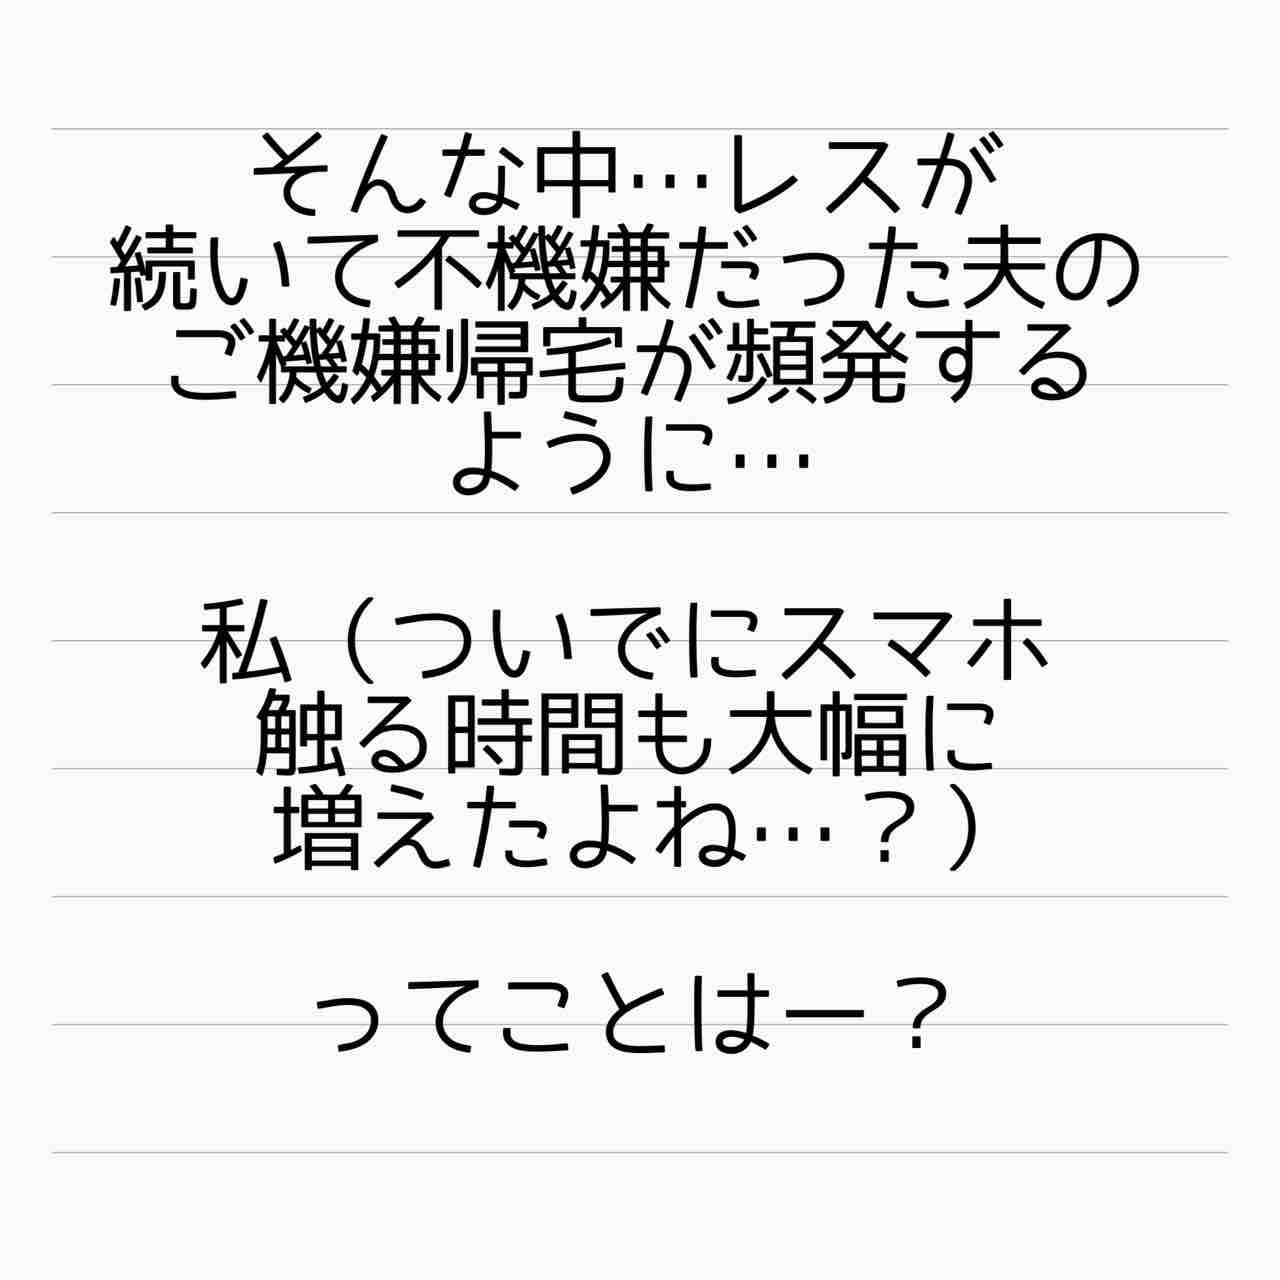 そんな中…レスが
続いて不機嫌だった夫の
ご機嫌帰宅が頻発する
ように…
私（ついでにスマホ
触る時間も大幅に
増えたよね…？）
ってことはー？